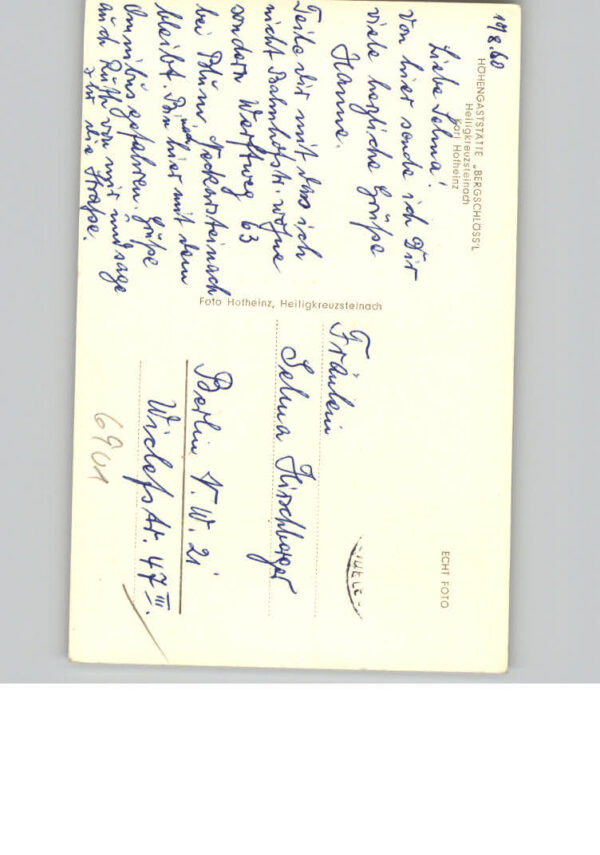 19.8.60
HÖHENGASTSTÄTTE „BERGSCHLÖSS'L
Heiligkreuzsteinach
Karl Hofheinz
Liebe Selma!
Von hier sende ich Dir
viele herzliche Grüße
Hanne.
Teile Dir mit dass ich
nicht Bahnhofstr. wohne
sondern Werftweg 63
bei Blum, Neckarsteinach
bleibt. Bin hier mit dem
Omnibus gefahren. Grüße
auch Ruth von mir und sage
ihr die Straße.
Foto Hofheinz, Heiligkreuzsteinach
ECHT FOTO
Fräulein
Selma Hirschberger
Berlin N.W. 21
Wiclefstr. 47 III.
6901